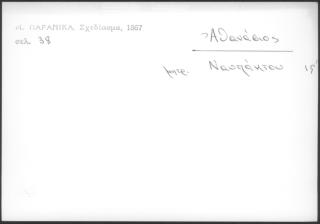 Μ. ΠΑΡΑΝΙΚΑ Σχεδίασμα, 1867
σελ. 38
Ἀθανάσιος
μητρ. Ναυπάκτου 15